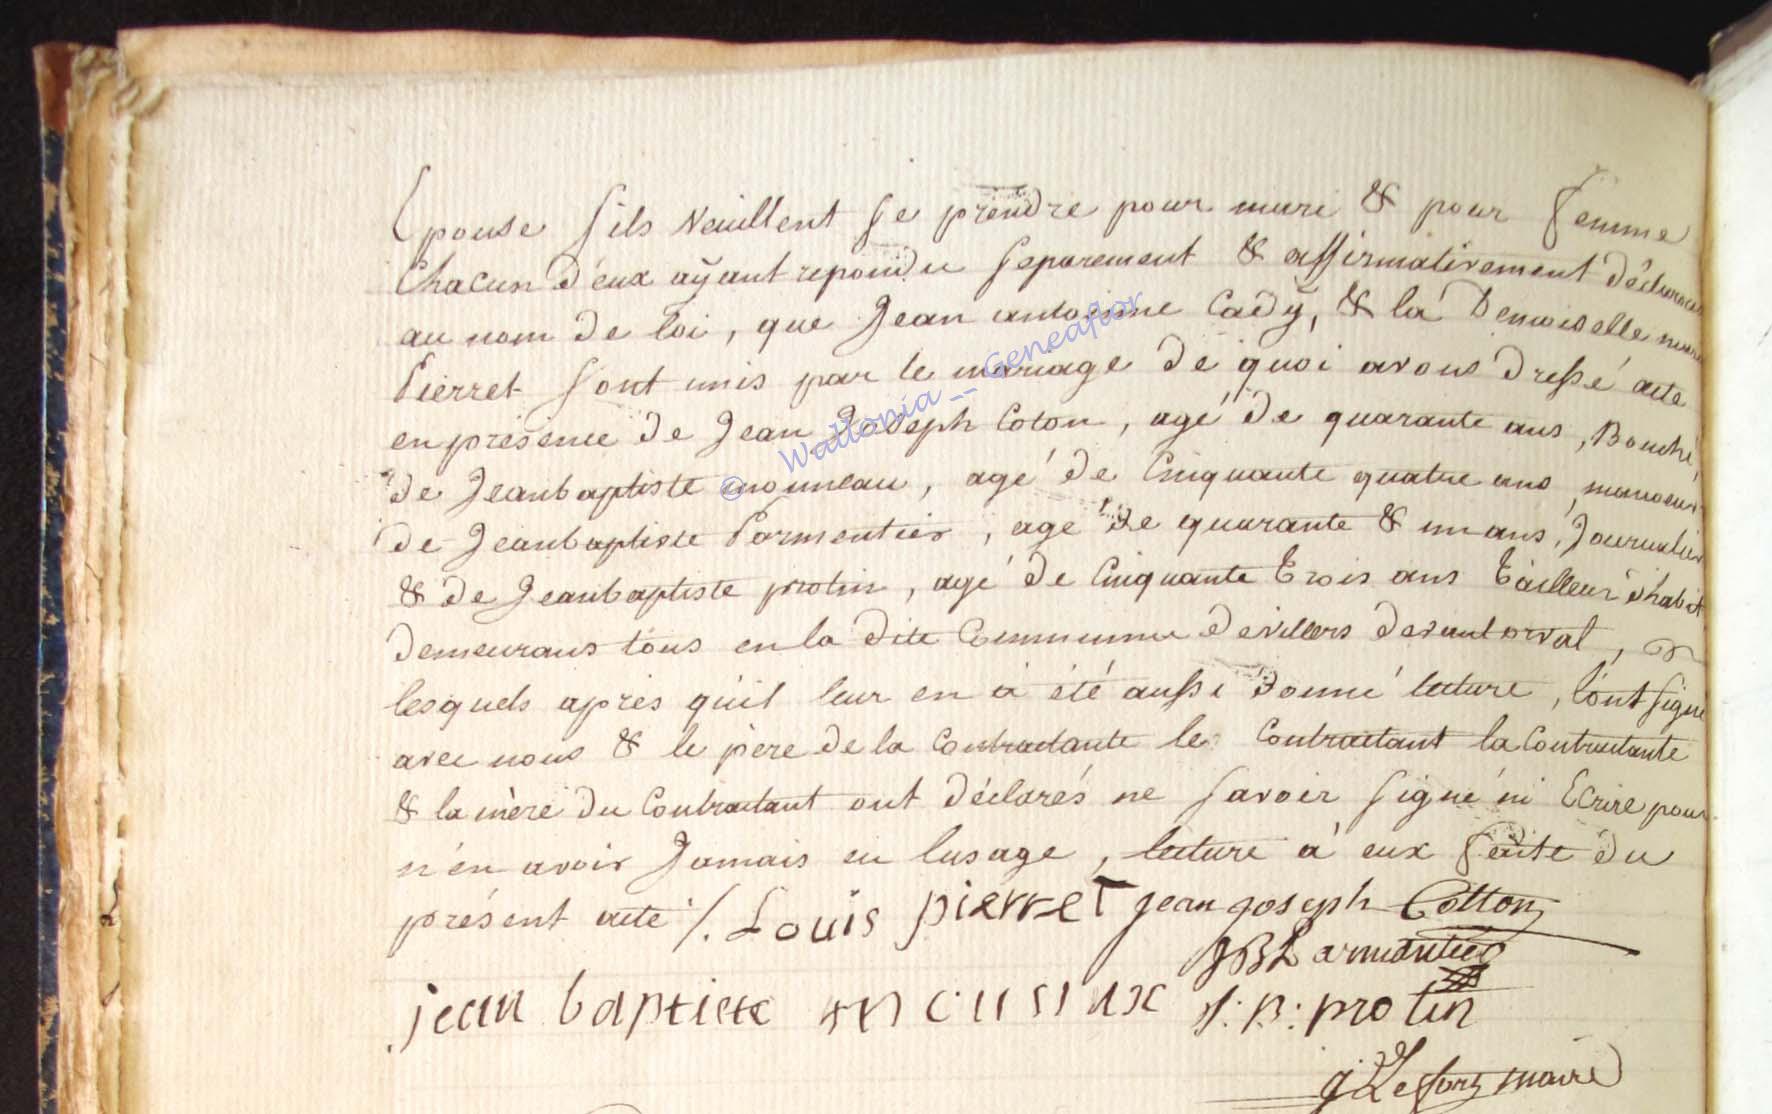 Epouse s'ils veuillent se prendre pour mari & pour femme
Chacun d'eux aÿant repondu separement & affirmativement déclarons
au nom de loi, que Jean antoinne Cady, & la Demoiselle marie
Pierret sont unis par le mariage de quoi avons dressé acte
en présence de Jean Joseph Coton, agé de quarante ans, Bouché,
de Jeanbaptiste mouneau, agé de Cinquante quatre ans, manoeuv
de Jeanbaptiste Parmentier, agé de quarante & un ans, Journalier
& de Jeanbaptiste protin, agé de Cinquante trois ans tailleur d'habit
demeurans tous en la dite Commune de villers devant orval,
lesquels aprés qu'il leur en à été aussi donné lecture, l'ont signé
avec nous & le père de la Contractante le Contractant la Contractante
& la mère du Contractant ont déclarés ne savoir signé ni Ecrire pour
n'en avoir Jamais eu lusage, lecture à eux faite du
présent acte ./. Louis pierret jean joseph Cotton
JBParmentier
jean baptiste J: B: protin
J Lefort maire
© Wallonia -- Geneaflor